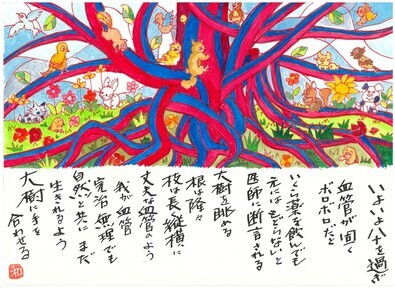 いよいよ八十を過ぎ
血管が固く
ボロボロだと
いくら薬を飲んでも
元にはもどらないと
医師に断言される
大樹を眺める
根は隆々
枝は長く縦横に
丈夫な血管のよう
我が血管
完治無理でも
自然と共にまだ
生きれるよう
大樹に手を
合わせる
和